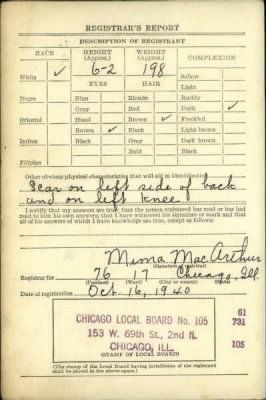 REGISTRAR'S REPORT
DESCRIPTION OF REGISTRANT
RACE HEIGHT (Approx.) WEIGHT (Approx.) COMPLEXION
White ✓ 6-2 198 Sallow
EYES HAIR Light
Negro Blue Blonde Ruddy
Gray Red Dark ✓
Oriental Hazel Brown ✓ Freckled
Brown ✓ Black Light brown
Indian Black Gray Dark brown
Bald Black
Filipino
Other obvious physical characteristics that will aid in identification
Scar on left side of back
and on left knee
I certify that my answers are true; that the person registered has read or has had
read to him his own answers; that I have witnessed his signature or mark and that
all of his answers of which I have knowledge are true, except as follows:
Mima MacArthur
(Signature of registrar)
Registrar for 76 17 Chicago, Ill.
(Precinct) (Ward) (City or county)
Date of registration Oct. 16, 1940
CHICAGO LOCAL BOARD No. 105 61
731
153 W. 69th ST., 2nd fl.
CHICAGO, ILL. 105
(STAMP OF LOCAL BOARD)
(The stamp of the Local Board having jurisdiction of the registrant
shall be placed in the above space.)